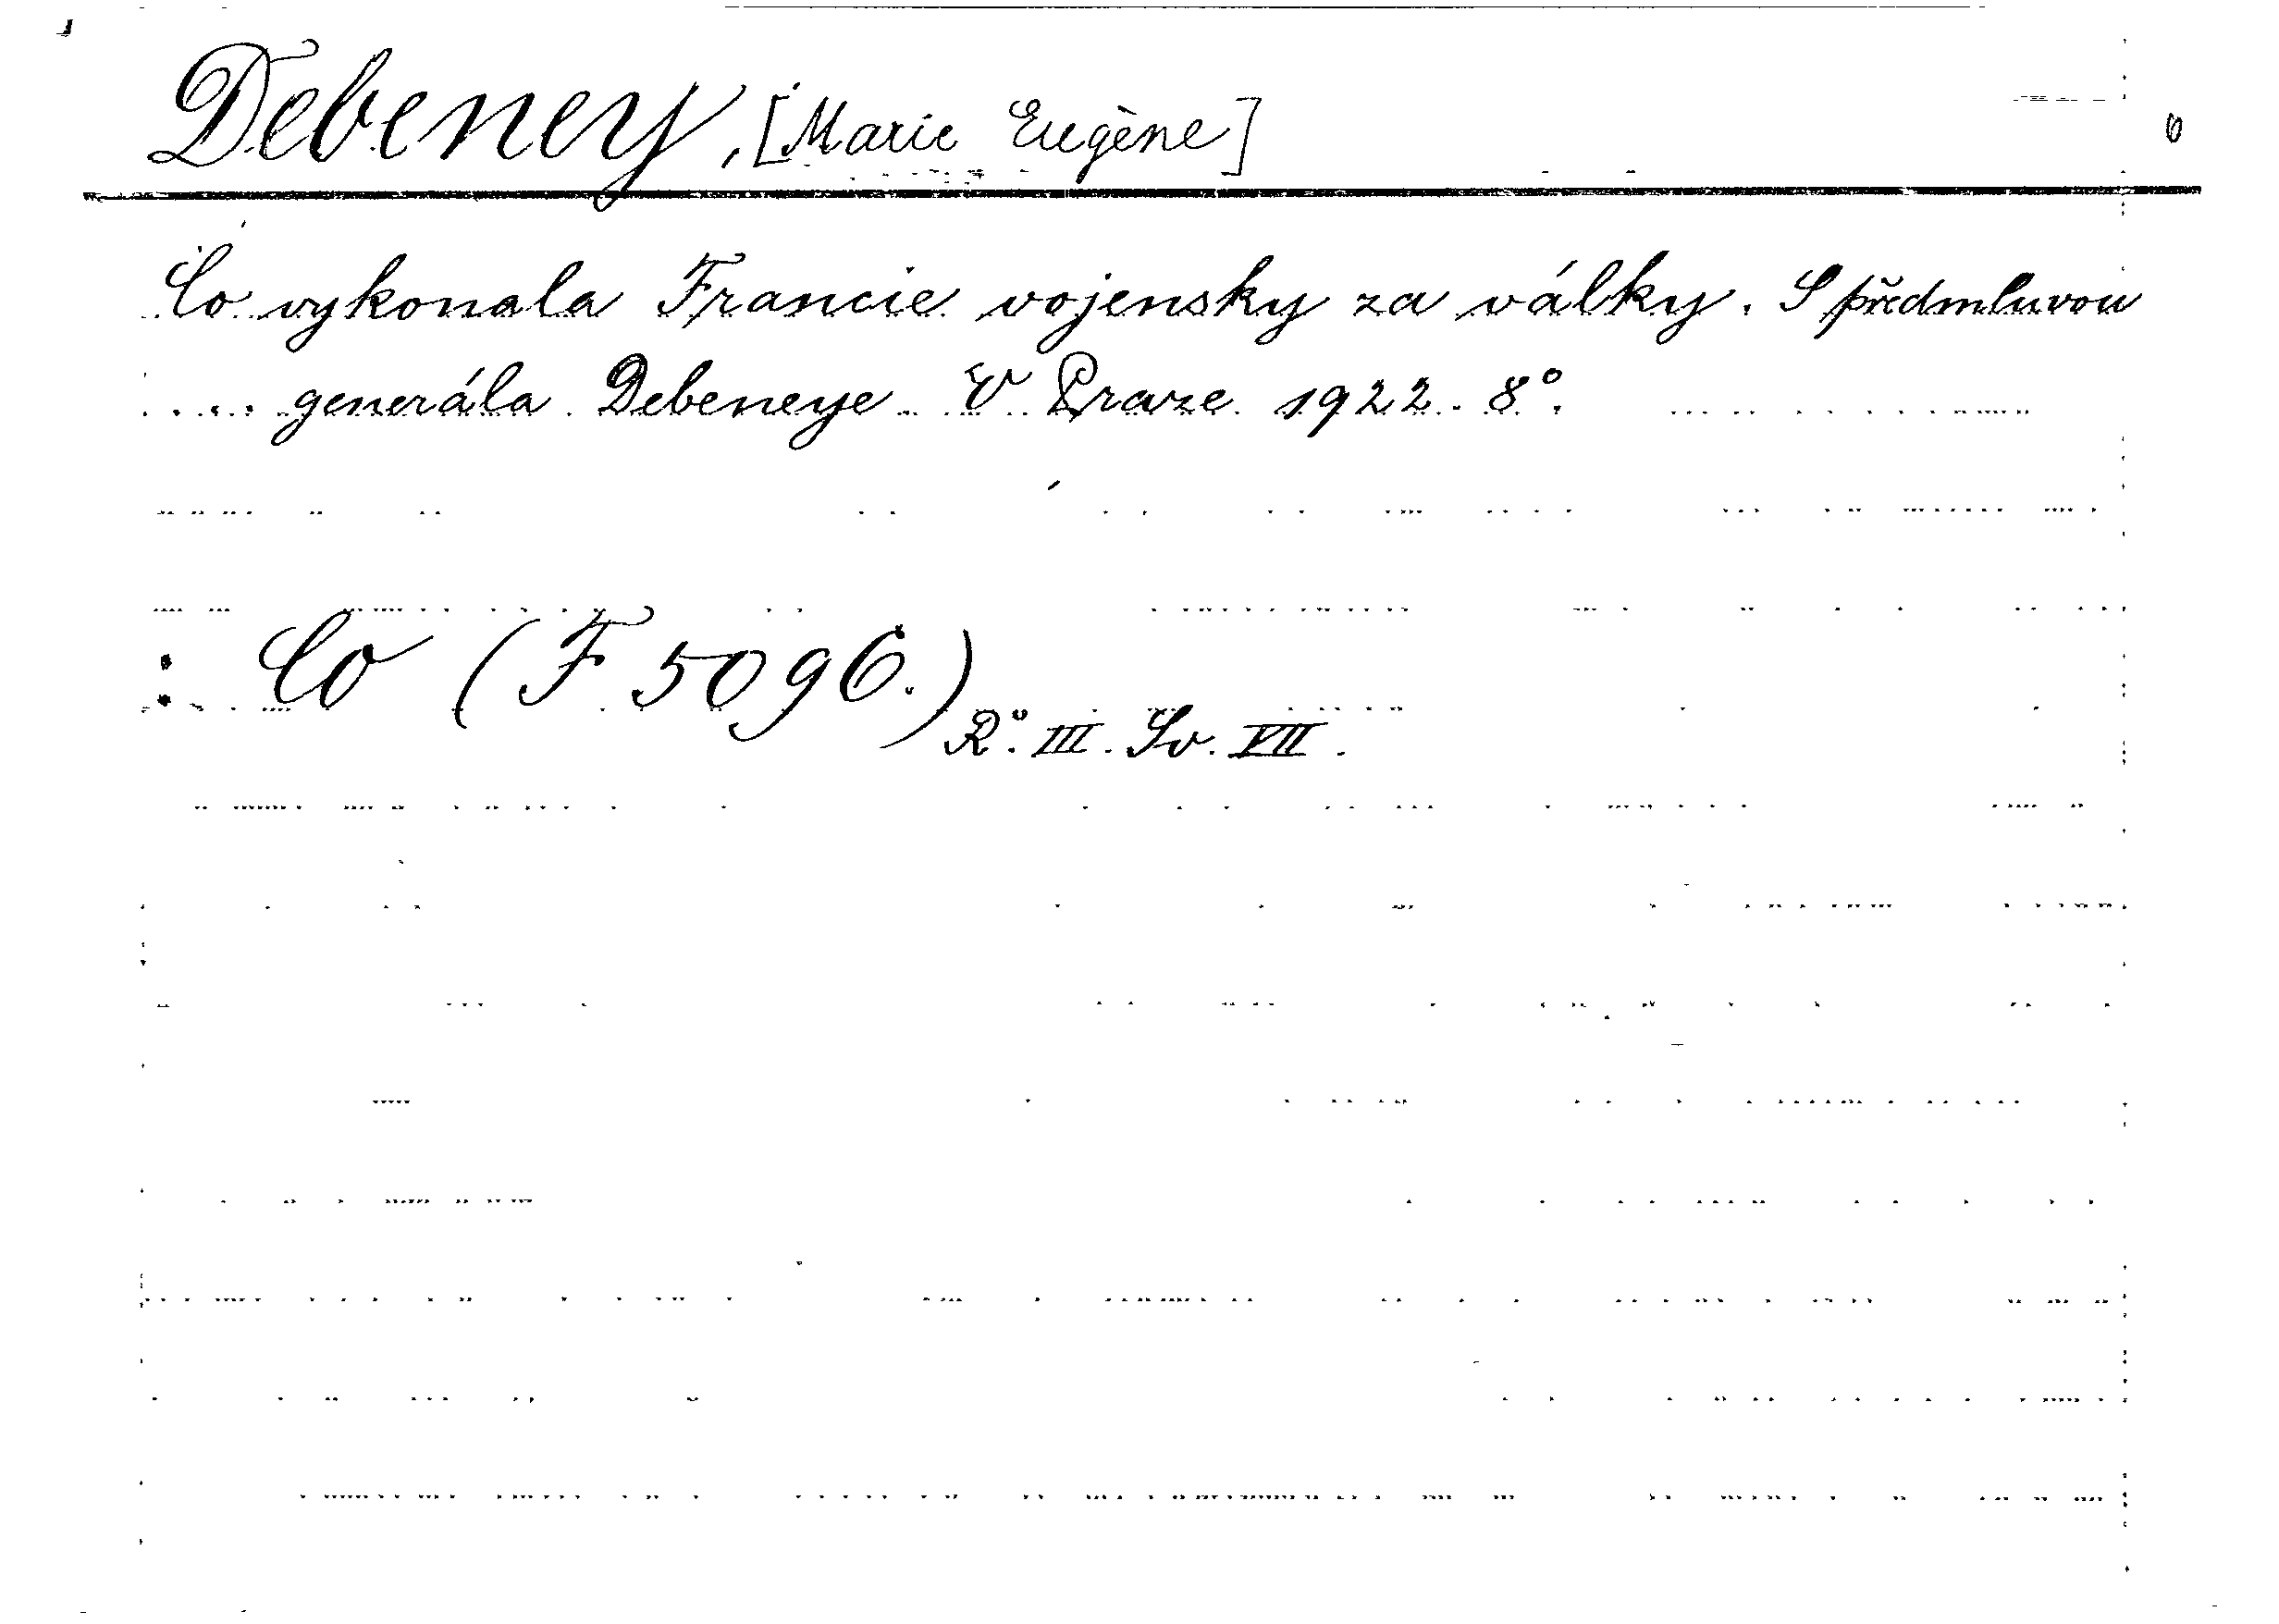 Debeney, [Marie Eugène]
Co vykonala Francie vojensky za války. S předmluvou
.... generála Debeneye. V Praze 1922. 8°.
: Co (F 5096.)
R°. III. Sv. VII.